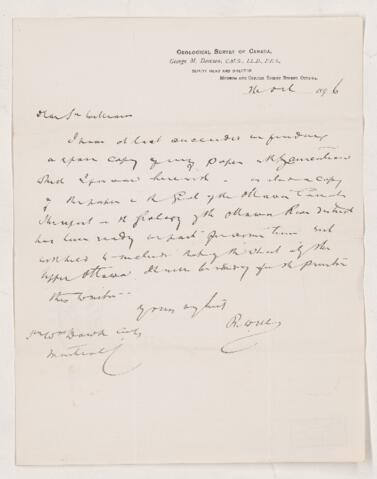 GEOLOGICAL SURVEY OF CANADA.
George M. Dawson, C.M.G., LL.D., F.R.S.,
DEPUTY HEAD AND DIRECTOR
MUSEUM AND OFFICES SUSSEX STREET OTTAWA.
1896
Dear Sir William
I have at last succeeded in finding
a spare copy of my paper
which I forward herewith also a copy
of the paper on the Geol of the Ottawa
The report on the Geology of the Ottawa River district
has been ready in part for some time but
to include the whole of the
upper Ottawa will be ready for the printer
this winter
Yours very truly
R. W. Ells
Sir Wm Dawson
Montreal